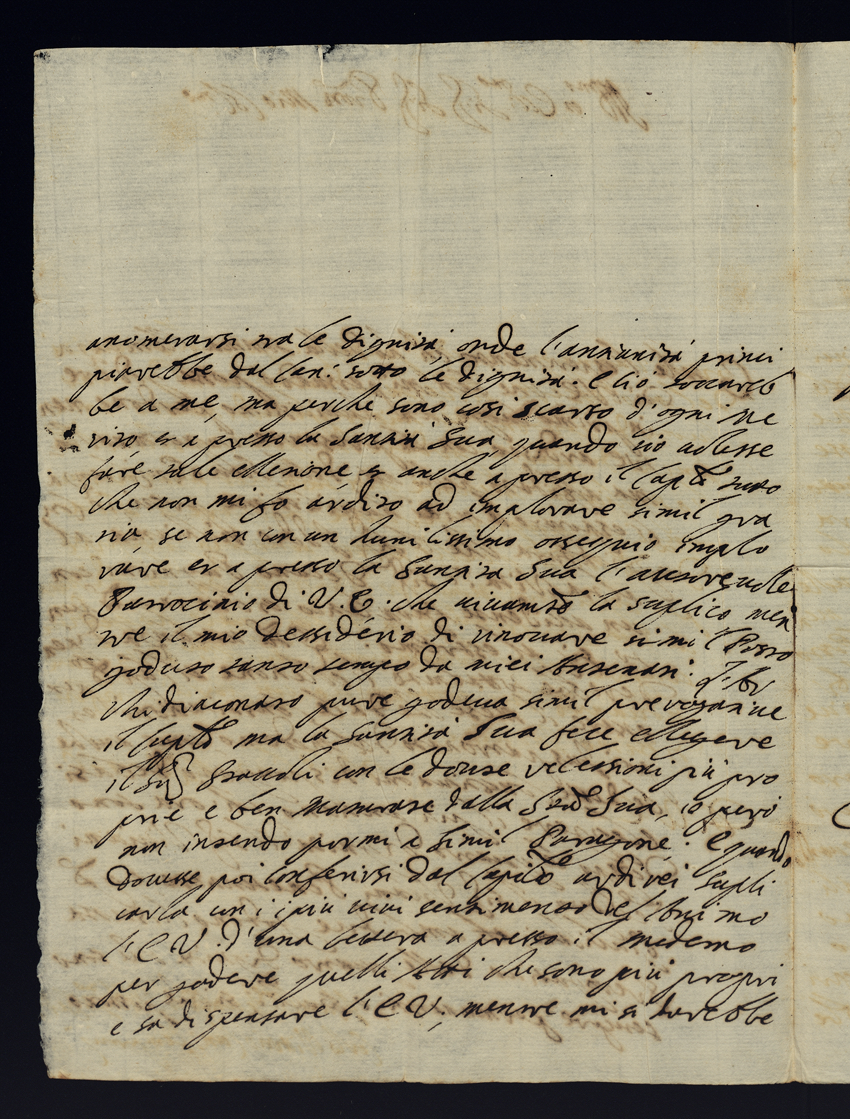 anumerarsi tra le dignità, onde l'anzianità princi
piarebbe dal Can: sotto le dignità. E ciò toccareb
be a me, ma perche sono così scarso d'ogni me
rito et apresso la Santità Sua, quando ciò volesse
fare tale ellezione, et anche apresso il Caplo tutto
che non mi fo ardito ad implorare simil gra
tia se non con un humilissimo ossequio implo
rare et apresso la Santità Sua l'autorevole
Patrocinio di V. E. che vivamte la suplico men
tre il mio dessiderio di rinovare simil Posto
goduto tanto tempo da miei Antenati.
chidiaconato pure godeva simil prerogative
il Caplo ma la Santità Sua fece ellegere
il Sig con le dovute relessioni più pro
prie e ben maturate dalla Stà Sua, io però
non intendo pormi a simil Paragone. E quando
dovesse poi conferirsi dal Capitlo ardirei supli
carla con i più vivi sentimento del Animo
l'E V. d'una lettera apresso il medemo
per godere quelli Atti che sono più propri
e sa dispensare l'E V., mentre mi si darebbe